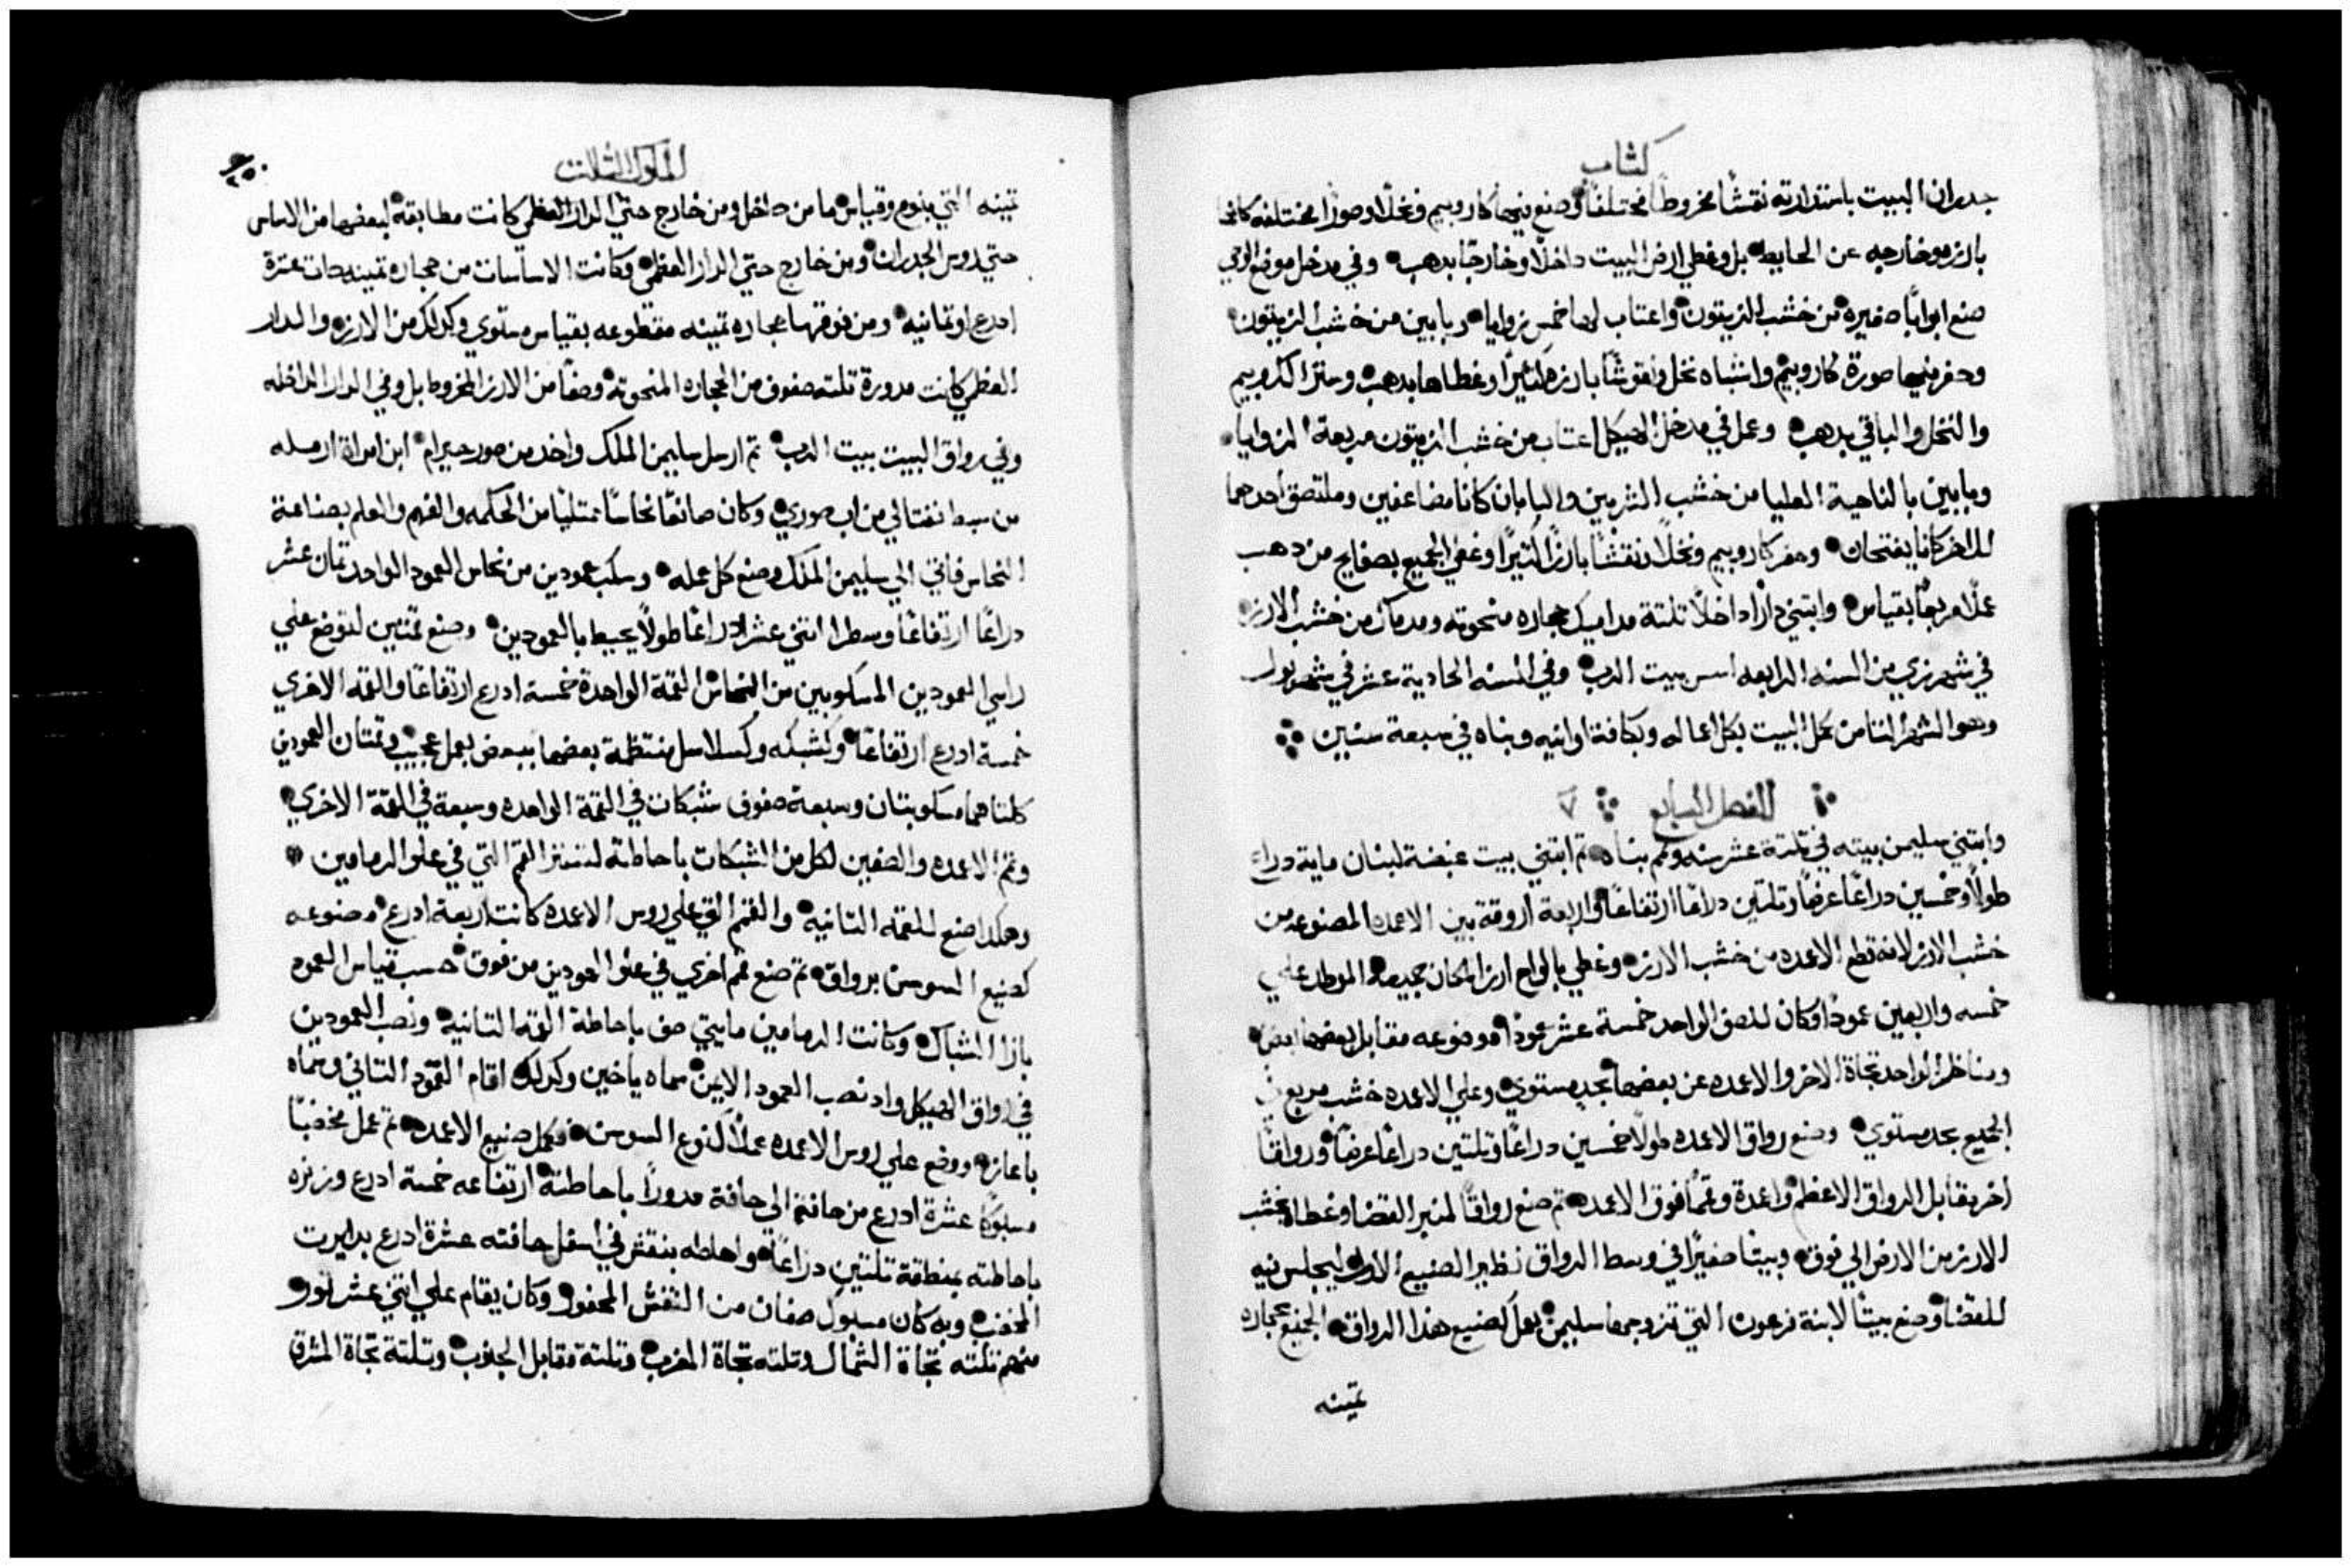 كتاب
جدران البيت باستدارته نقشًا مخروطًا مختلفًا وصنع فيها كاروبيم ونخلًا وصورًا مختلفه كانها
بارزه وخارجه عن الحايط بل وغطي ارض البيت داخلًا وخارجًا بدهب وفي مدخل موضع الوحي
صنع ابوابًا صغيره من خشب الزيتون واعتاب لها خمس زوايا وبابين من خشب الزيتون
وحفر فيها صورة كاروبيم واشباه نخل ونقوشًا بارزه كتيرًا وغطاها بدهب وستر الكروبيم
والنخل والباقي بدهب وعمل في مدخل الهيكل اعتاب من خشب الزيتون مربعة الزوايا
وبابين بالناحية العليا من خشب الشربين والبابان كانا مضاعفين وملتصق احدهما
للاخر كانا يفتحان وحفر كاروبيم ونخلًا ونقشًا بارزًا كتيرًا وغطي الجميع بصفايح من دهب
عملًا مربعًا بقياس وابتني دارًا داخلًا تلتة مداميك حجاره منحوته ومدماك من خشب الارز
في شهر زي من السنه الرابعه اسس بيت الرب وفي السنه الحادية عشر في شهر بول
وهو الشهر التامن كمل البيت بكل اعماله وبكافة اوانيه وبناه في سبعة سنين
الفصل السابع ٧
وابتني سليمن بيته في تلتة عشر سنه وتمم بناه تم ابتني بيت غيضة لبنان ماية دراع
طولًا وخمسين دراعًا عرضًا وتلتين دراعًا ارتفاعًا واربعة اروقة بين الاعمده المصنوعه من
خشب الارز لانه قطع الاعمده من خشب الارز وغطي بالواح ارز المكان جميعه الموطد علي
خمسه واربعين عمودًا وكان للصف الواحد خمسة عشر عمودًا موضوعه مقابل بعضها بعض
ومناظر الواحد تجاة الاخر والاعمده عن بعضها بحد مستوي وعلي الاعمده خشب مربع في
الجميع بحد مستوي وصنع رواق الاعمده طولًا خمسين دراعًا وتلتين دراعًا عرضًا ورواقًا
اخر يقابل الرواق الاعظم واعمدة وقممًا فوق الاعمده تم صنع رواقًا لمنبر القضا وغطاه بخشب
الارز من الارض الي فوق وبيتًا صغيرًا في وسط الرواق نظير الصنيع الاول ليجلس فيه
للقضا وصنع بيتًا لابنة فرعون التي تزوجها سليمن بعمل كصنيع هذا الرواق الجميع بحجاره
تمينه
الملوك التالت
٢٥٠
تمينه التي بنوع وقياس ما من داخل ومن خارج حتي الدار العظمي كانت مطابقة لبعضها من الاساس
حتي روس الجدران ومن خارج حتي الدار العظمي وكانت الاساسات من حجاره تمينه دات عشرة
ادرع او تمانيه ومن فوقها حجاره تمينه مقطوعه بقياس مستوي وكدلك من الارز والدار
العظمي كانت مدورة تلته صفوف من الحجاره المنحوته وصفًا من الارز المخروط بل وفي الدار الداخله
وفي رواق البيت بيت الرب تم ارسل سليمن الملك واخد من صور حيرام ابن امراة ارمله
من سبط نفتالي من اب صوري وكان صانعًا نحاسًا ممتليًا من الحكمه والفهم والعلم بصناعة
النحاس فاتي الي سليمن الملك وصنع كل عمله وسكب عمودين من نحاس العمود الواحد تمان عشر
دراعًا ارتفاعًا وسطر اتني عشر دراعًا طولًا يحيط بالعمودين وصنع قمتين لتوضع علي
راسي العمودين المسكوبين من النحاس القمة الواحدة خمسة ادرع ارتفاعًا والقمه الاخري
خمسة ادرع ارتفاعًا وكشبكه وكسلاسل منتظمة بعضها ببعض بعمل عجيب وقمتان العمودين
كلتاهما مسكوبتان وسبعة صفوف شبكات في القمة الواحده وسبعة في القمة الاخري
وتمم الاعمده والصفين لكل من الشبكات باحاطة لتستر القمم التي في علو الرمامين
وهكدا صنع للقمه التانيه والقمم التي علي روس الاعمدة كانت اربعة ادرع مصنوعه
كصنيع السوسن برواق تم صنع قمم اخري في علو العمودين من فوق حسب قياس العمود
بازا الشباك وكانت الرمامين مايتي صف باحاطة القمه التانيه ونصب العمودين
في رواق الهيكل واد نصب العمود الايمن سماه ياخين وكدلك اقام العمود التاني وسماه
باعاز ووضع علي روس الاعمده عملًا كنوع السوسن فكمل صنيع الاعمده تم عمل مخضبًا
مسبوكًا عشرة ادرع من حافته الي حافة مدورًا باحاطته ارتفاعه خمسة ادرع وزنره
باحاطته بمنطقة تلتين دراعًا واحاطه بنقش في اسفل حافته عشرة ادرع بدايرت
المخضب وبه كان مسبول صفان من النقش المحفور وكان يقام علي اتني عشر تور
منهم تلته تجاة الشمال وتلته تجاة المغرب وتلتة مقابل الجنوب وتلتة تجاة المشرق